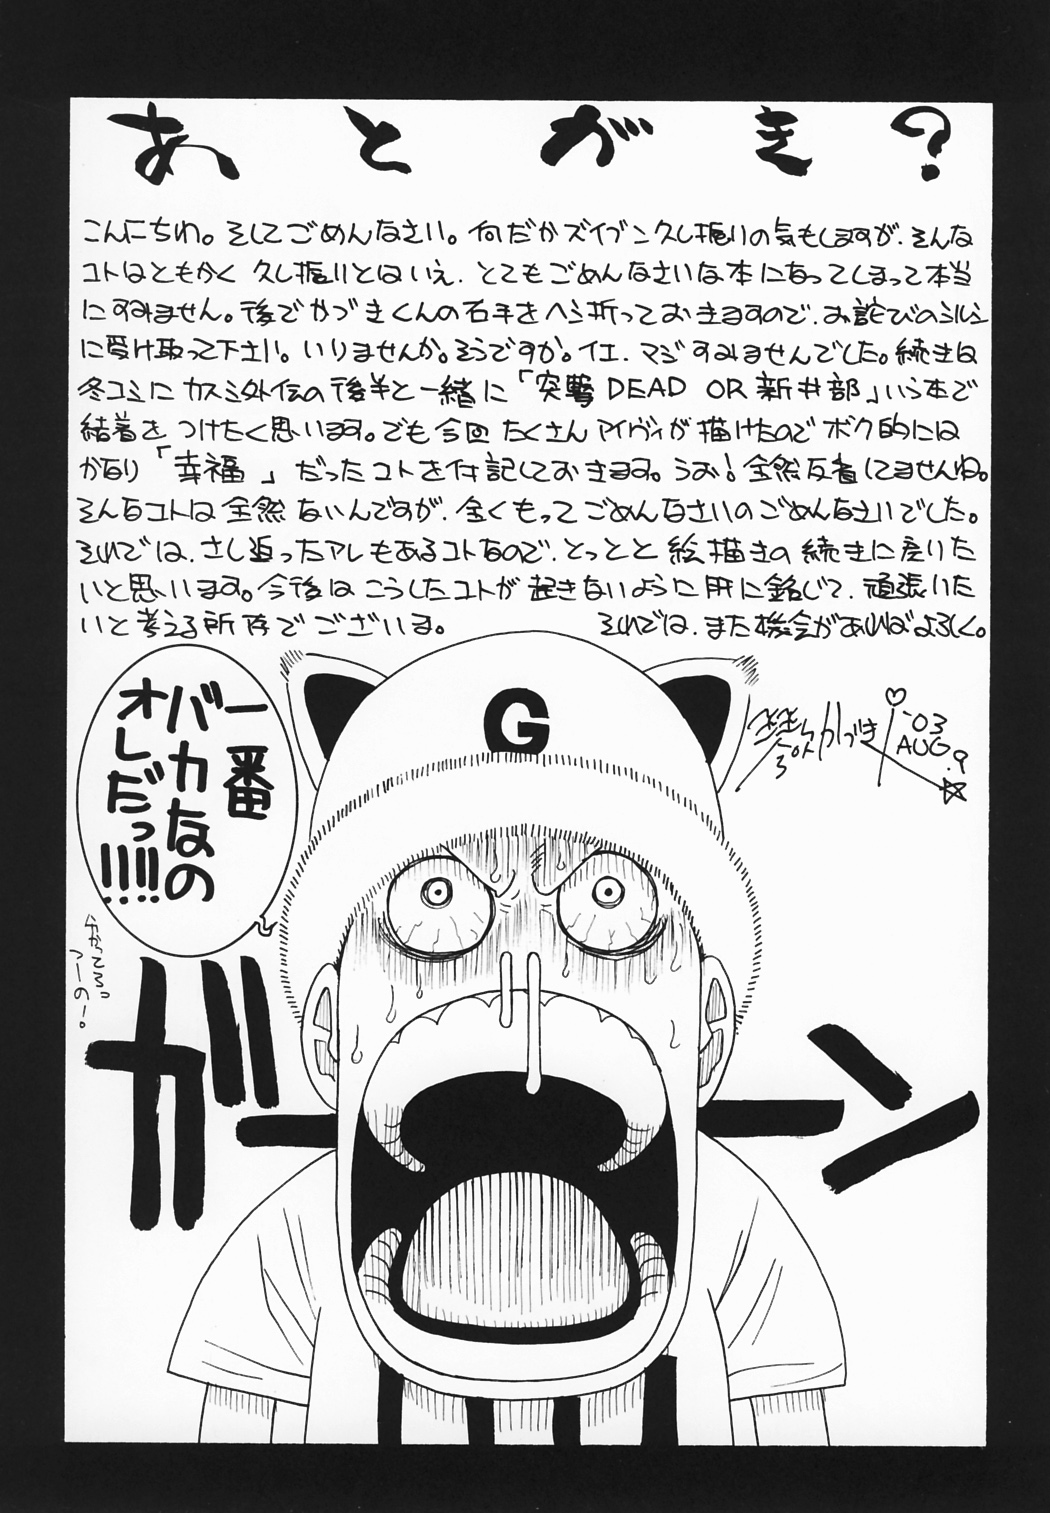 あとがき?
こんにちわ。そしてごめんなさい。何だかズイブン久し振りの気もしますが、そんな
コトはともかく 久し振りとはいえ、とてもごめんなさいな本になってしまって本当
にすみません。後でかづきくんの右手をヘシ折っておきますので、お詫びのシルシ
に受け取って下さい。いりませんか。そうですか。イエ、マジすみませんでした。続きは
冬コミにカスミ外伝の後半と一緒に「突撃 DEAD OR 新井部」いう本で
結着をつけたく思います。でも今回たくさんアイヴィが描けたのでボク的には
かなり「幸福」だったコトを付記しておきます。うお!全然反省してませんね。
そんなコトは全然ないんですが、全くもってごめんなさいのごめんなさいでした。
それでは、さし迫ったアレもあるコトなので、とっとと絵描きの続きに戻りた
いと思います。今後はこうしたコトが起きないように肝に銘じて、頑張りた
いと考える所存でございま。 それでは、また機会があればよろしく。
かづき
'03
AUG.9
G
一番
バカなの
オレだっ!!!!
わかってるっ
つーの!。
ガーン